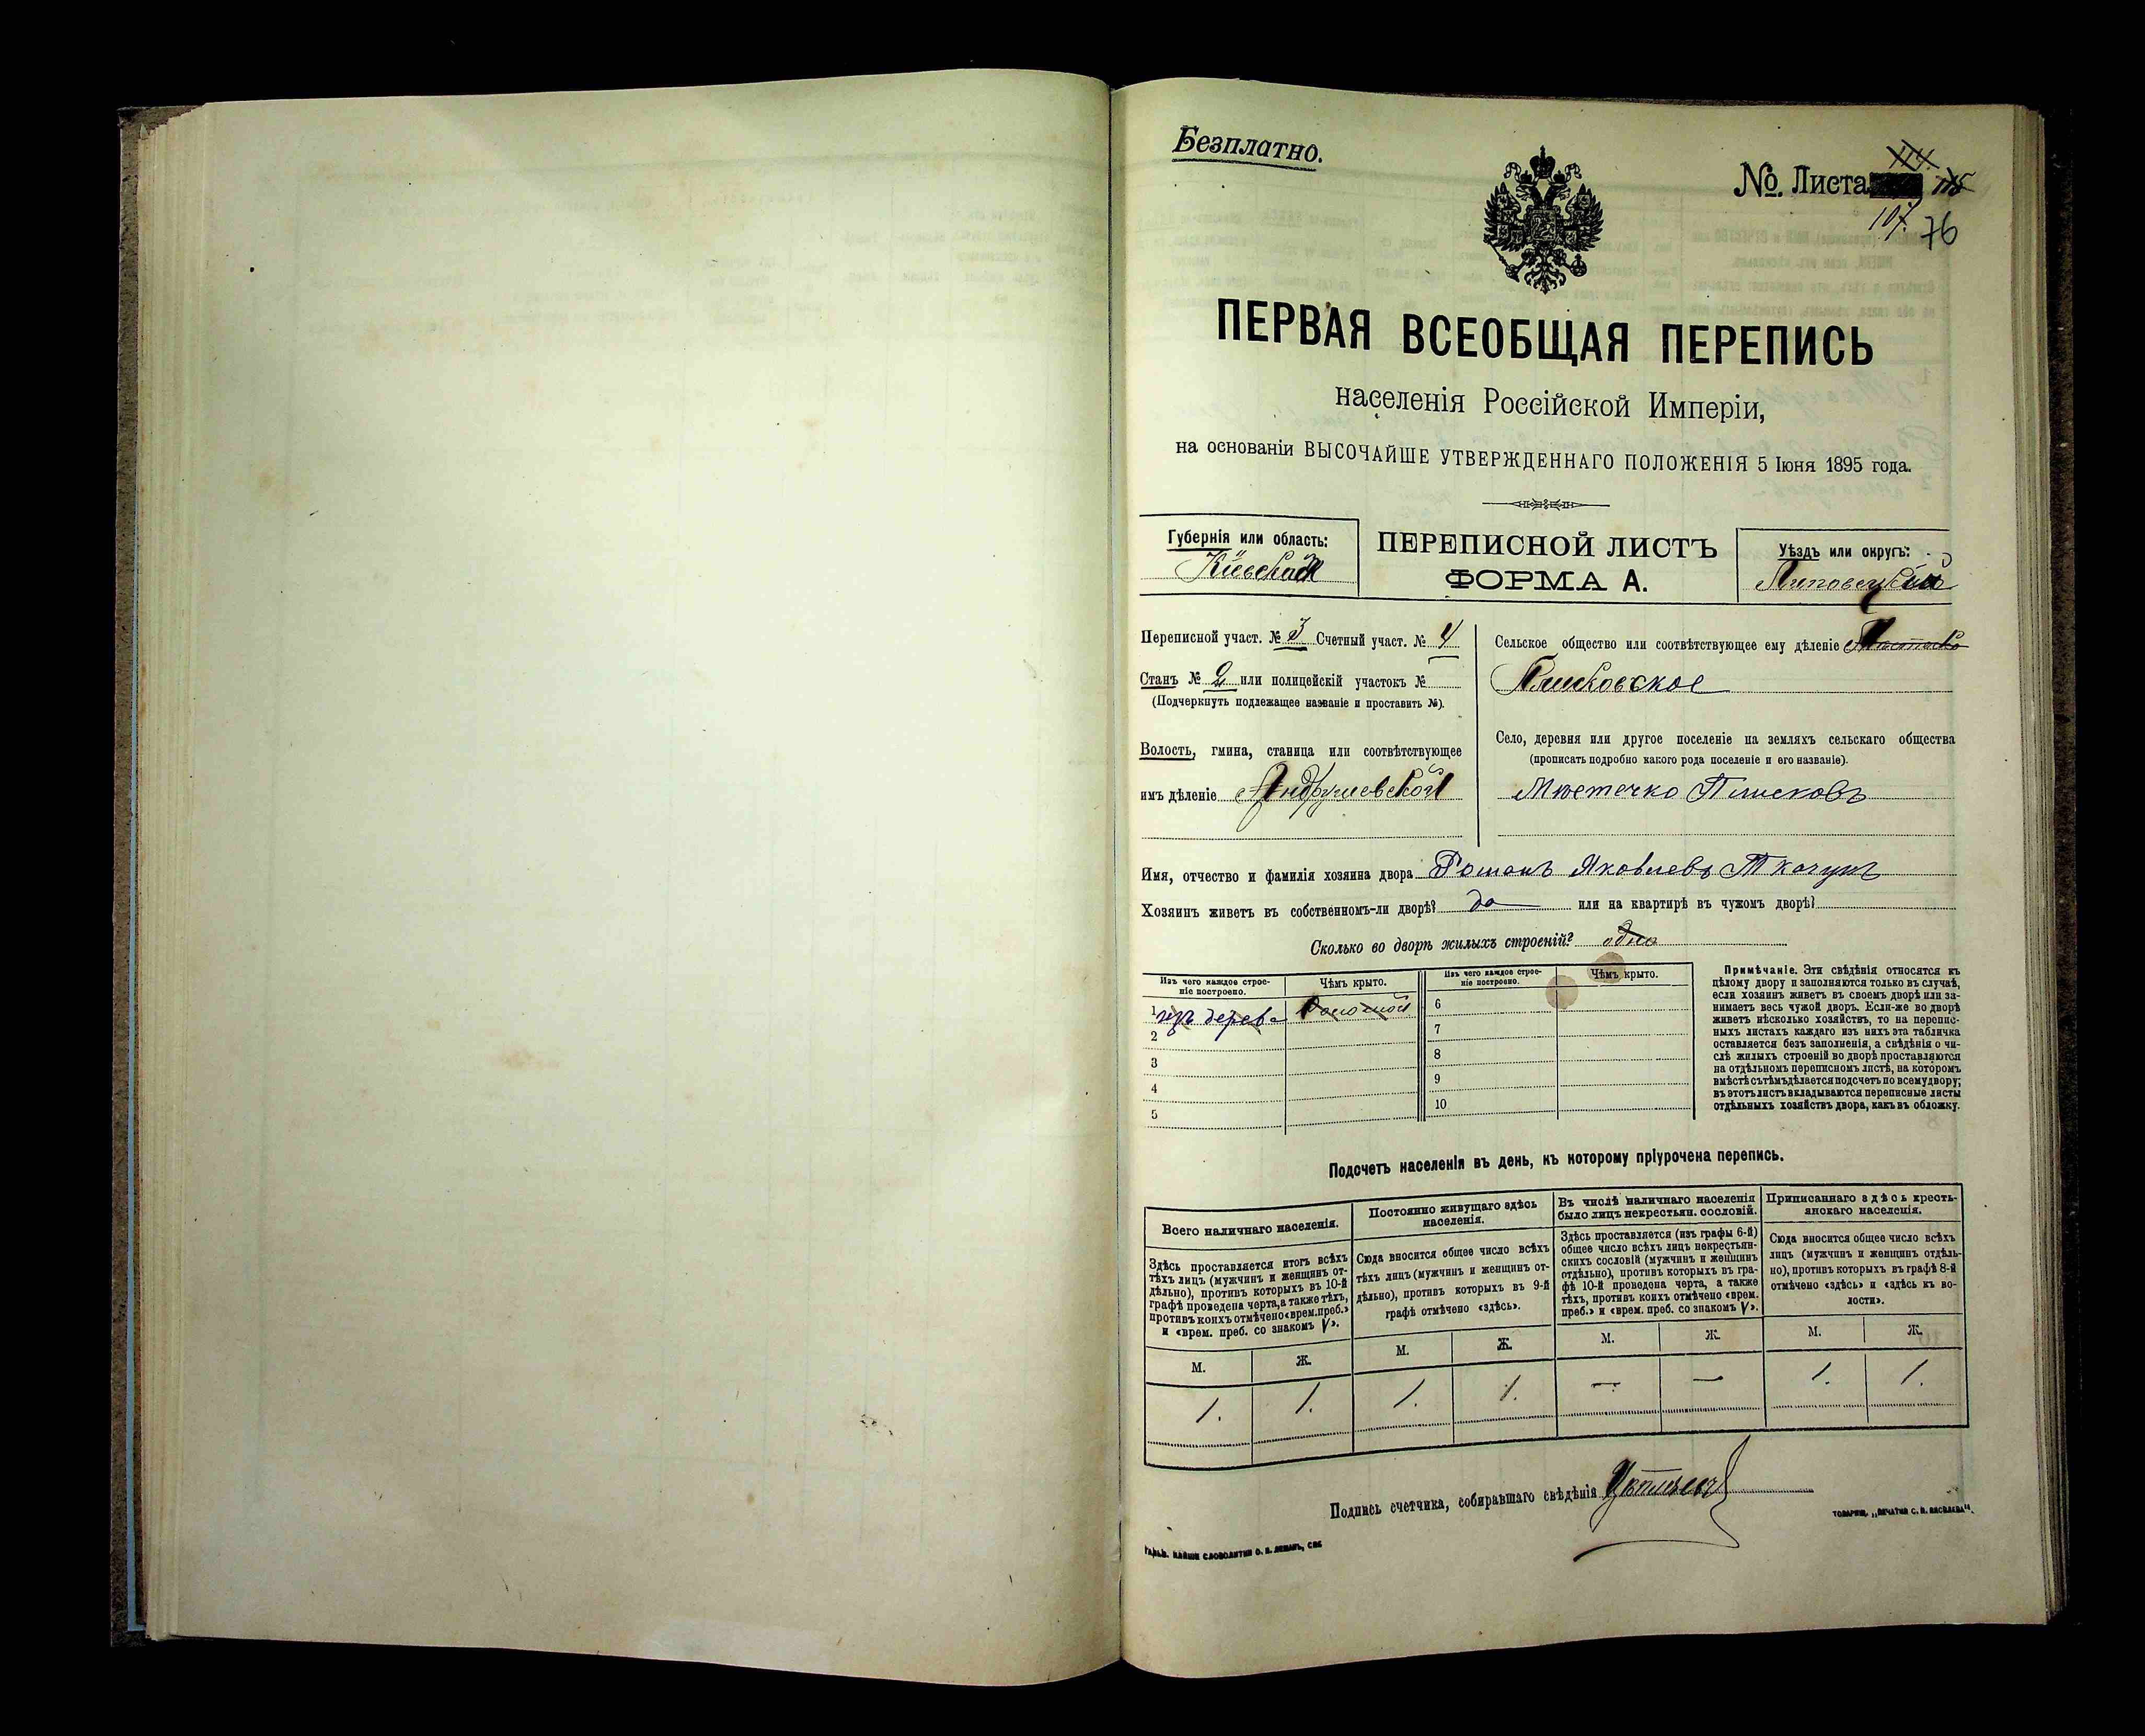 Безплатно.
№. Листа
76
ПЕРВАЯ ВСЕОБЩАЯ ПЕРЕПИСЬ
населенія Россійской Имперіи,
на основаніи ВЫСОЧАЙШЕ УТВЕРЖДЕННАГО ПОЛОЖЕНІЯ 5 Іюня 1895 года.
Губернія или область:
Кіевская
ПЕРЕПИСНОЙ ЛИСТЪ
ФОРМА А.
Уѣздъ или округъ:
Липовецкій
Переписной участ. № 3 Счетный участ. № 4
Станъ № 2 или полицейскій участокъ №
(Подчеркнуть подлежащее названіе и проставить №).
Волость, гмина, станица или соотвѣтствующее
имъ дѣленіе Андрушевской
Сельское общество или соотвѣтствующее ему дѣленіе
Плисковское
Село, деревня или другое поселеніе на земляхъ сельскаго общества
(прописать подробно какого рода поселеніе и его названіе).
Мѣстечко Плисковъ
Имя, отчество и фамилія хозяина двора Романъ Яковлевъ Ткачукъ
Хозяинъ живетъ въ собственномъ-ли дворѣ? да или на квартирѣ въ чужомъ дворѣ?
Сколько во дворѣ жилыхъ строеній? одно
Изъ чего каждое строе-
ніе построено.
Чѣмъ крыто.
1 изъ дерева Соломой
2
3
4
5
Изъ чего каждое строе-
ніе построено.
Чѣмъ крыто.
6
7
8
9
10
Примѣчаніе. Эти свѣдѣнія относятся къ
цѣлому двору и заполняются только въ случаѣ,
если хозяинъ живетъ въ своемъ дворѣ или за-
нимаетъ весь чужой дворъ. Если-же во дворѣ
живетъ нѣсколько хозяйствъ, то на перепис-
ныхъ листахъ каждаго изъ нихъ эта табличка
оставляется безъ заполненія, а свѣдѣнія о чи-
слѣ жилыхъ строеній во дворѣ проставляются
на отдѣльномъ переписномъ листѣ, на которомъ
вмѣстѣ съ тѣмъ дѣлается подсчетъ по всему двору;
въ этотъ листъ вкладываются переписные листы
отдѣльныхъ хозяйствъ двора, какъ въ обложку.
Подсчетъ населенія въ день, къ которому пріурочена перепись.
Всего наличнаго населенія.
Здѣсь проставляется итогъ всѣхъ
тѣхъ лицъ (мужчинъ и женщинъ от-
дѣльно), противъ которыхъ въ 10-й
графѣ проведена черта, а также тѣхъ,
противъ коихъ отмѣчено «врем. преб.»
и «врем. преб. со знакомъ V».
М. Ж.
1. 1.
Постоянно живущаго здѣсь
населенія.
Сюда вносится общее число всѣхъ
тѣхъ лицъ (мужчинъ и женщинъ от-
дѣльно), противъ которыхъ въ 9-й
графѣ отмѣчено «здѣсь».
М. Ж.
1. 1.
Въ числѣ наличнаго населенія
было лицъ некрестьян. сословій.
Здѣсь проставляется (изъ графы 6-й)
общее число всѣхъ лицъ некрестьян-
скихъ сословій (мужчинъ и женщинъ
отдѣльно), противъ которыхъ въ гра-
фѣ 10-й проведена черта, а также
тѣхъ, противъ коихъ отмѣчено «врем.
преб.» и «врем. преб. со знакомъ V».
М. Ж.
— —
Приписаннаго здѣсь кресть-
янскаго населенія.
Сюда вносится общее число всѣхъ
лицъ (мужчинъ и женщинъ отдѣль-
но), противъ которыхъ въ графѣ 8-й
отмѣчено «здѣсь» и «здѣсь къ во-
лости».
М. Ж.
1. 1.
Подпись счетчика, собиравшаго свѣдѣнія
ТОВАРИЩ. „ПЕЧАТНЯ С. П. ЯКОВЛЕВА“.